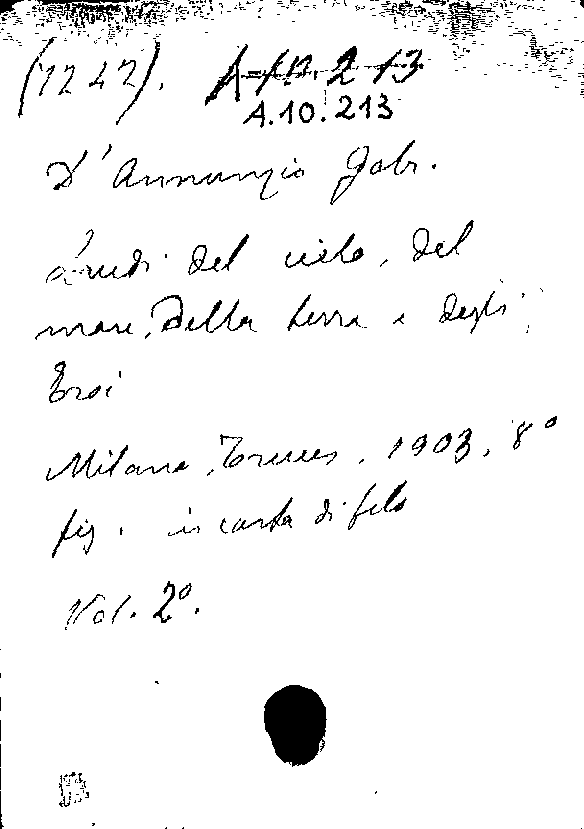 (1242). A-10.213
A.10.213
D'Annunzio Gabr.
Laudi del cielo, del
mare, della terra e degli
Eroi
Milano, Treves, 1903, 8°
fig. in carta di filo
Vol. 2°.